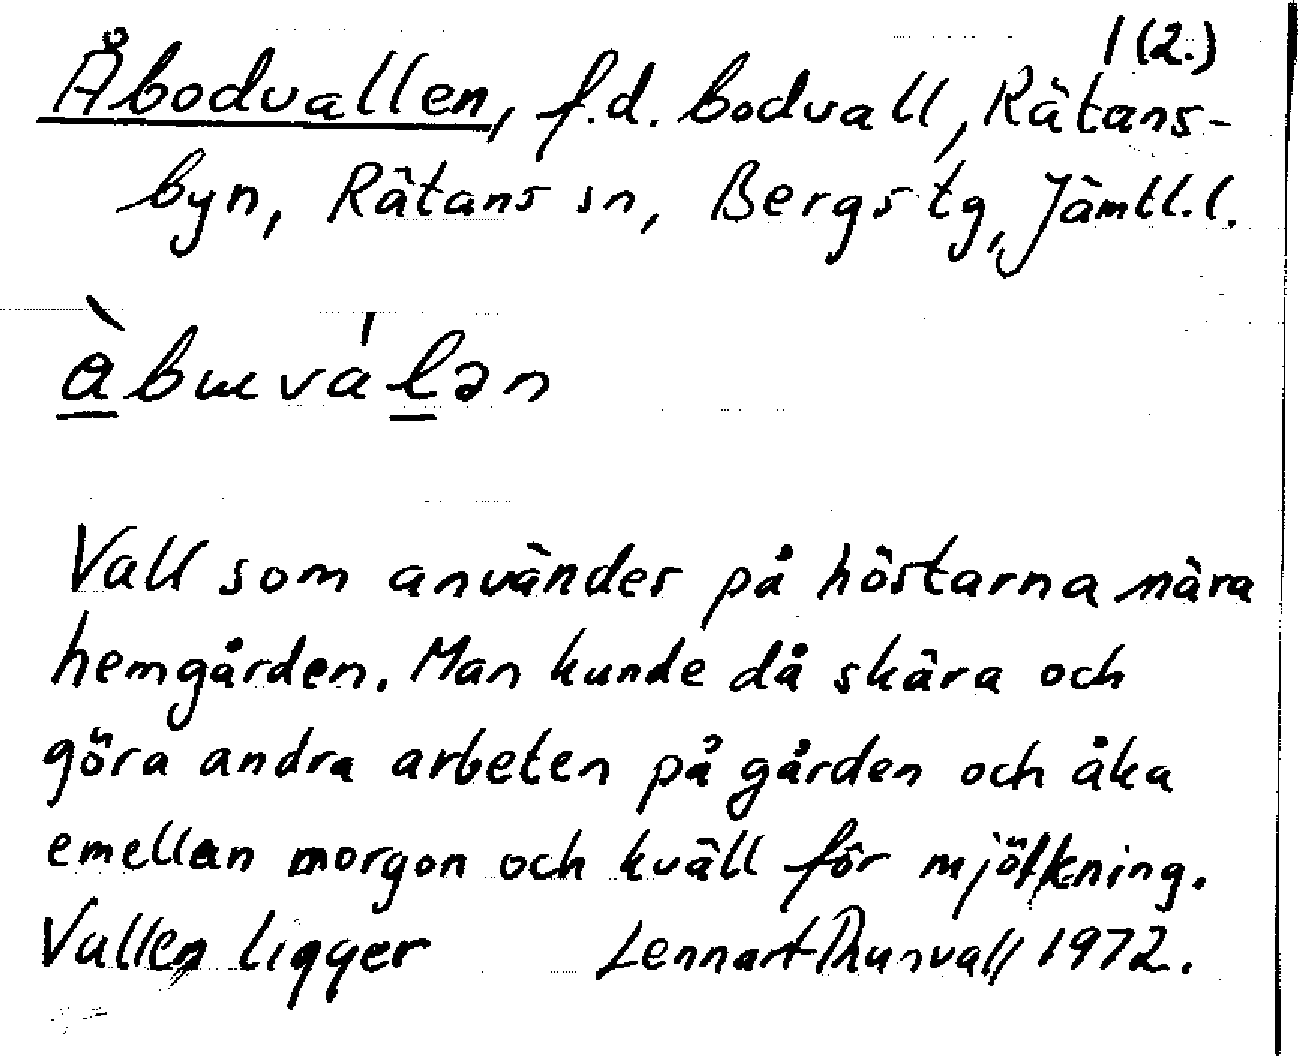 1 (2.)
Åbodvallen, f.d. bodvall, Rätans-
byn, Rätans sn, Bergs tg, Jämtl.l.
Vall som användes på höstarna nära
hemgården. Man kunde då skära och
göra andra arbeten på gården och åka
emellan morgon och kväll för mjölkning.
Vallen ligger Lennart Thunvall 1972.